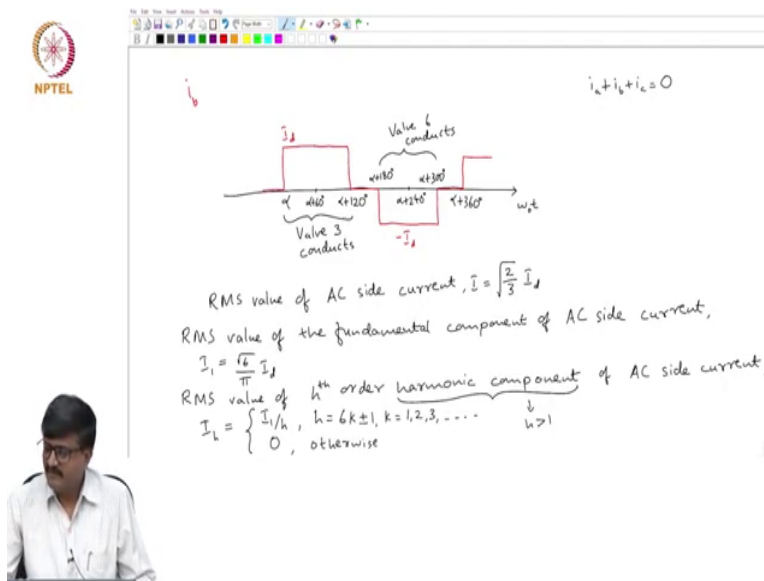 File Edit View Insert Actions Tools Help
Page Width
B I
NPTEL
i_b
i_a + i_b + i_c = 0
I_d
Valve 6
conducts
α+180° α+300°
α α+60° α+120° α+240° α+360° ω₀t
Valve 3
conducts
-I_d
RMS value of AC side current, I = √(2/3) I_d
RMS value of the fundamental component of AC side current,
I_1 = √6/π I_d
RMS value of hᵗʰ order harmonic component of AC side current
↓
h>1
I_h = { I_1/h , h = 6k ± 1, k = 1, 2, 3, ....
0 , otherwise